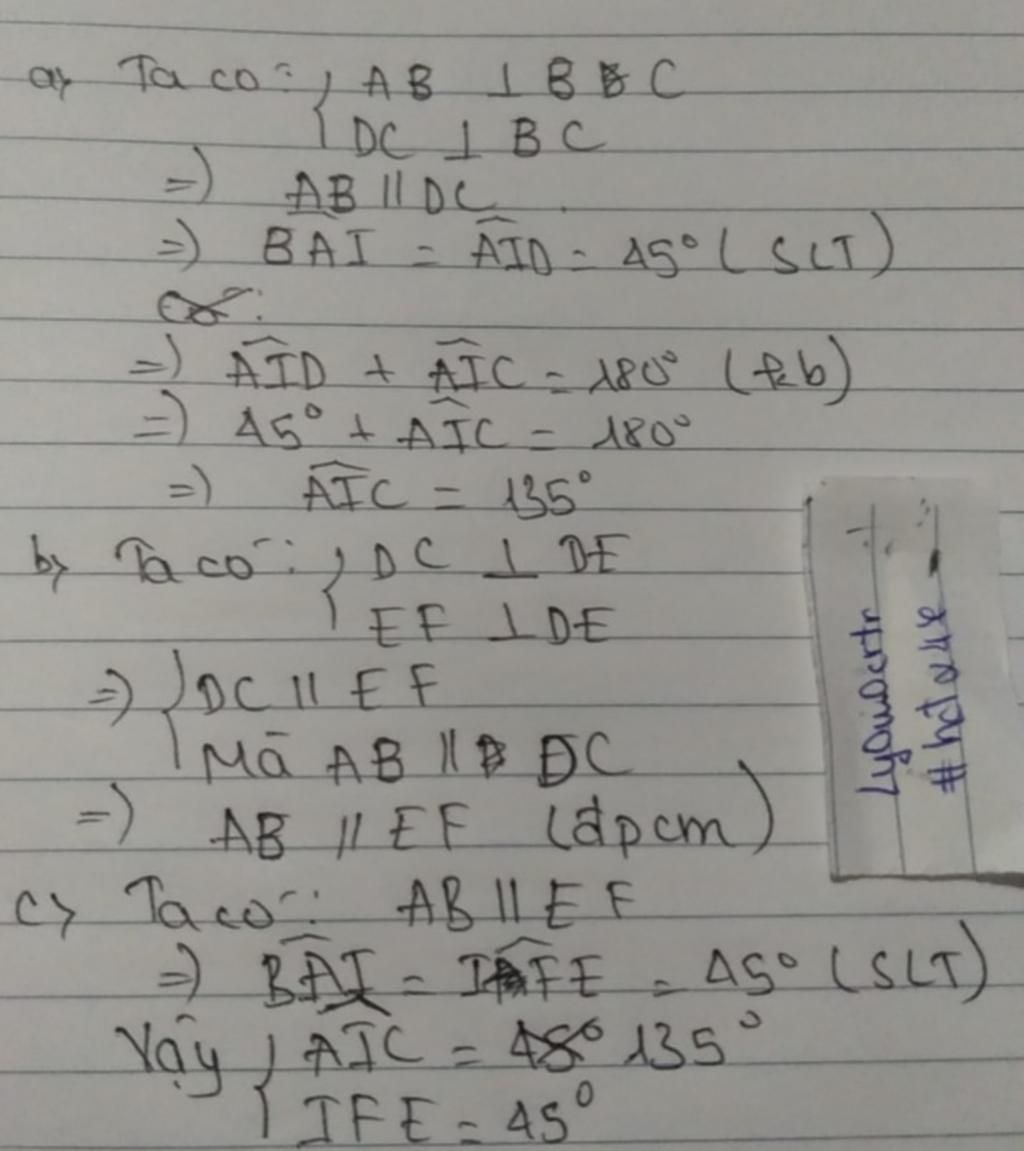 a, Ta có: { AB ⊥ BC
DC ⊥ BC
=) AB // DC
=) BAI = AID = 45° (SLT)
=) AID + AIC = 180° (kb)
=) 45° + AIC = 180°
=) AIC = 135°
b, Ta có: { DC ⊥ DE
EF ⊥ DE
=) { DC // EF
Mà AB // DC
=) AB // EF (đpcm)
c, Ta có: AB // EF
=) BAI = IFE = 45° (SLT)
Vậy { AIC = 135°
IFE = 45°